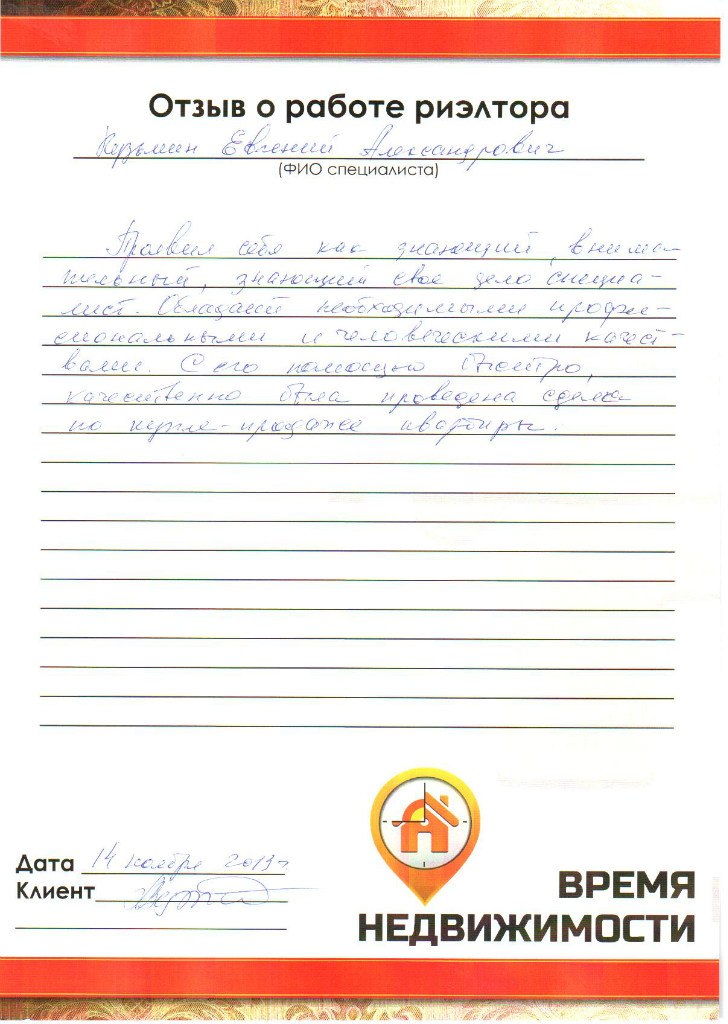 Отзыв о работе риэлтора
Кузьмин Евгений Александрович
(ФИО специалиста)
Проявил себя как знающий, внима-
тельный, знающий свое дело специа-
лист. Обладает необходимыми профес-
сиональными и человеческими качест-
вами. С его помощью быстро,
качественно была проведена сделка
по купле-продаже квартиры.
Дата 14 ноября 2013 г
Клиент
ВРЕМЯ
НЕДВИЖИМОСТИ